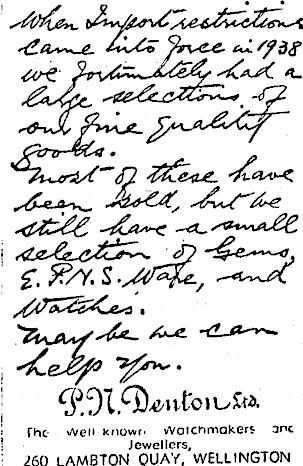 When Import restrictions
came into force in 1938
we fortunately had a
large selections of
our fine quality
goods.
Most of these have
been sold, but we
still have a small
selection of Gems,
E.P.N.S. Ware, and
Watches.
May be we can
help you.
P.N. Denton Ltd.
The Well known Watchmakers and
Jewellers,
260 LAMBTON QUAY, WELLINGTON